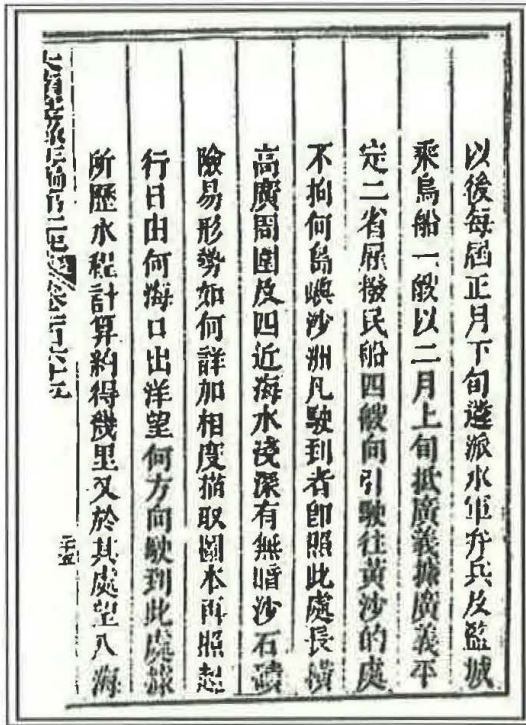 以後每屆正月下旬遴派水軍弁兵及監城
乘烏船一艘以二月上旬抵廣義據廣義平
定二省雇撥民船四艘向引駛往黃沙的處
不拘何島嶼沙洲凡駛到者即照此處長橫
高廣周圍及四近海水淺深有無暗沙石磧
險易形勢如何詳加相度描取圖本再照起
行日由何海口出洋望何方向駛到此處據
所歷水程計算約得幾里又於其處望入海
卷一百六十五
二十五